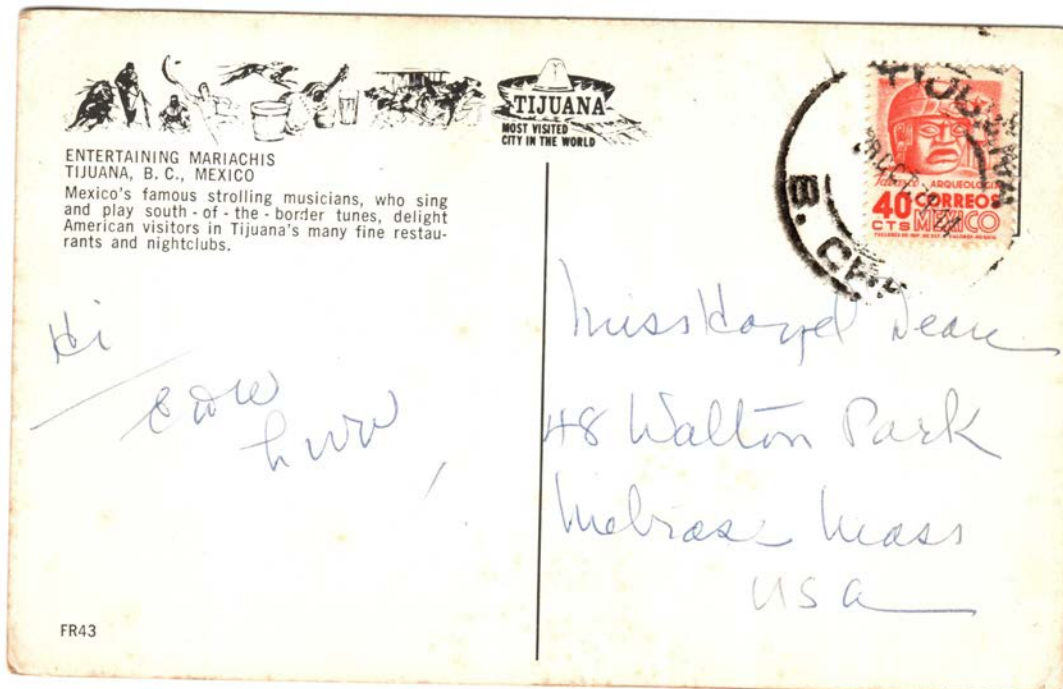 TIJUANA
MOST VISITED
CITY IN THE WORLD
ENTERTAINING MARIACHIS
TIJUANA, B. C., MEXICO
Mexico's famous strolling musicians, who sing
and play south - of - the - border tunes, delight
American visitors in Tijuana's many fine restau-
rants and nightclubs.
Hi
FR43
B. CFA.
ARQUEOLOGIA
40 CORREOS
CTS MEXICO
Miss Hazel Deane
48 Walton Park
Melrose Mass
USA